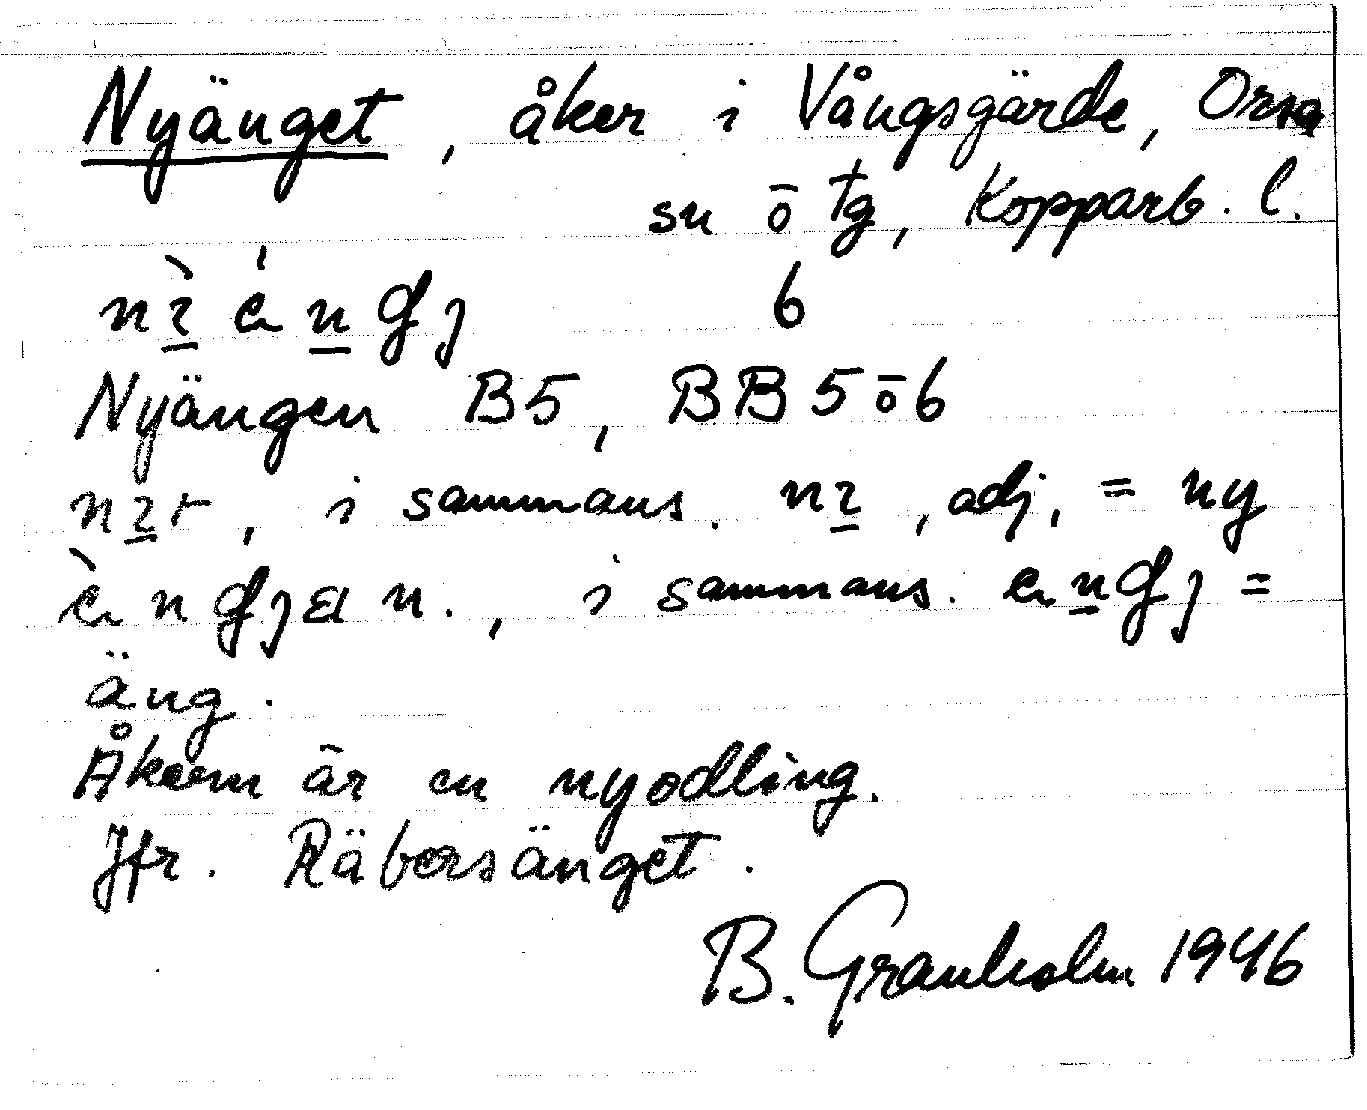 Nyänget, åker i Vångsgärde, Orsa
sn ō tg, Kopparb. l.
6
Nyängen B5, BB 5 ō 6
i sammans. adj. = ny
i sammans. =
äng.
Åkern är en nyodling.
Jfr. Räborsänget.
B. Granholm 1946